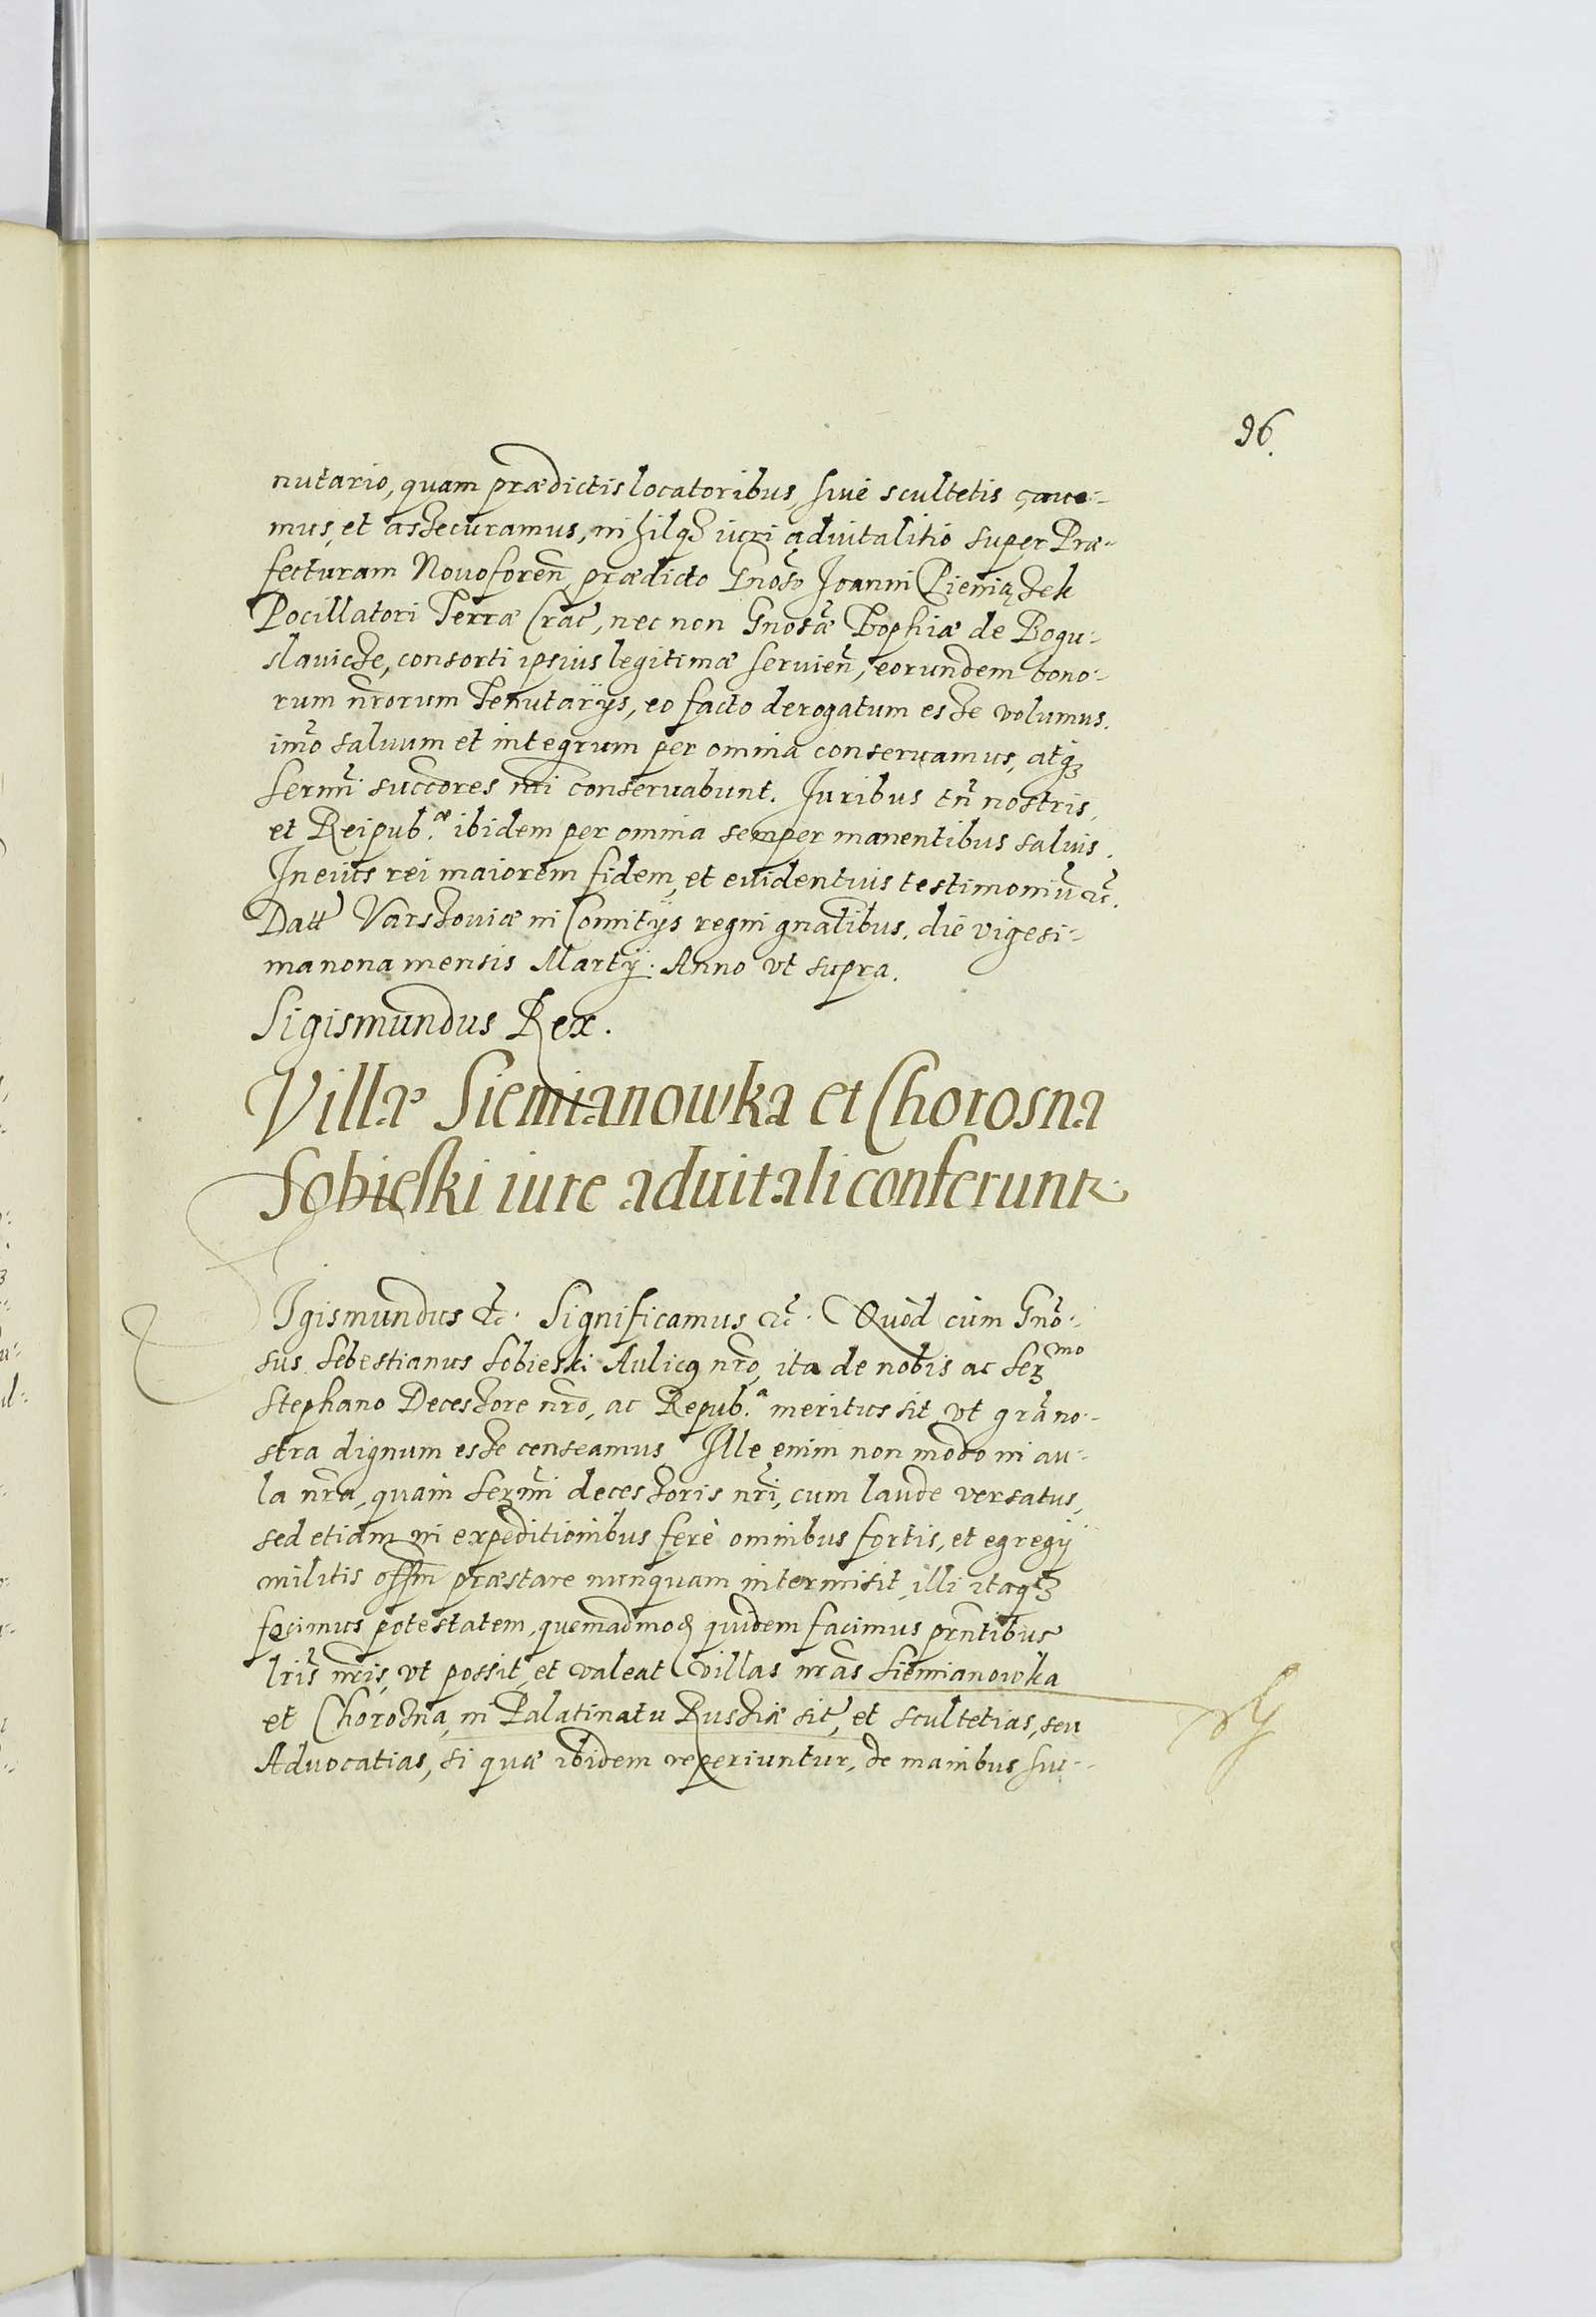 96.
nutario, quam prædictis locatoribus, siue scultetis caue-
mus, et assecuramus, nihilq₃ iuri aduitalitio super Præ-
fecturam Nouoforen̄ prædicto Gn̄oso Joanni Pieniążek
Pocillatori Terræ Crac̄, nec non Gn̄osæ Zophiæ de Bogu-
slauicze, consorti ipsius legitimæ seruien̄, eorundem bono-
rum nr̄orum Tenutarijs, eo facto derogatum esse volumus.
imō saluum et integrum per omnia conseruamus, atq₃
serm̄i succōres nr̄i conseruabunt. Juribus tn̄ nostris,
et Reipub.æ ibidem per omnia semper manentibus saluis.
In cuius rei maiorem fidem, et euidentius testimoniū &c̄.
Datt Varssouiæ in Comitijs regni gn̄alibus, die vigesi-
ma nona mensis Martij. Anno vt supra.
Sigismundus Rex.
Villæ Siemianowka et Chorosna
Sobieski iure aduitali conferuntr.
Igismundus &c̄. Significamus &c̄. Quòd cùm Gn̄o-
sus Sebestianus Sobieski Aulicq nr̄o, ita de nobis ac Ser.mo
Stephano Decessore nr̄o, ac Repub.a meritus sit, vt gr̄a no-
stra dignum esse censeamus Ille enim non modo in au-
la nr̄a, quàm serm̄i decessoris nr̄i, cum laude versatus,
sed etiam in expeditionibus ferè omnibus fortis, et egregij
militis offm̄ præstare nunquam intermisit, illi itaq₃
fecimus potestatem, quemadmod quidem facimus prn̄tibus
lr̄is nr̄is, vt possit, et valeat villas nr̄as Siemianowka
et Chorosna, in Palatinatu Russiæ sit̄, et scultetias, seu
Aduocatias, si quæ ibidem reperiuntur, de manibus suc-